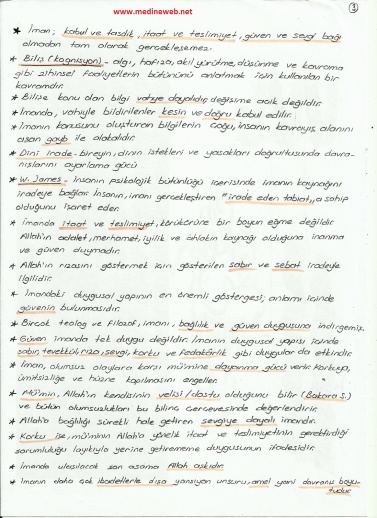 www.medineweb.net
3
* İman; kabul ve tasdik, itaat ve teslimiyet, güven ve sevgi bağı
olmadan tam olarak gerçekleşemez.
* Biliş (Kognisyon) - algı, hafıza, akıl yürütme, düşünme ve kavrama
gibi zihinsel faaliyetlerin bütününü anlatmak için kullanılan bir
kavramdır.
* Bilişe konu olan bilgi vahye dayalıdır, değişime açık değildir.
* İmanda, vahiyle bildirilenler kesin ve doğru kabul edilir.
* İmanın konusunu oluşturan bilgilerin çoğu, insanın kavrayış alanını
aşan gayb ile alakalıdır.
* Dini irade - bireyin, dinin istekleri ve yasakları doğrultusunda davra-
nışlarını ayarlama gücü
* W. James - İnsanın psikolojik bütünlüğü içerisinde imanın kaynağını
iradeye bağlar. İnsanın, imanı gerçekleştiren "irade eden tabiat"a sahip
olduğunu işaret eder.
* İmanda itaat ve teslimiyet, körükörüne bir boyun eğme değildir.
Allah'ın adalet, merhamet, iyilik ve ahlakın kaynağı olduğuna inanma
ve güven duymadır.
* Allah'ın rızasını göstermek için gösterilen sabır ve sebat iradeyle
ilgilidir.
* İmandaki duygusal yapının en önemli göstergesi, anlamı içinde
güvenin bulunmasıdır.
* Birçok teolog ve filozof, imanı, bağlılık ve güven duygusuna indirgemiş.
* Güven imanda tek duygu değildir. İmanın duygusal yapısı içinde
sabır, tevekkül, rıza, sevgi, korku ve fedakarlık gibi duygular da etkindir.
* İman, olumsuz olaylara karşı mü'mine dayanma gücü verir. Korkuya,
ümitsizliğe ve hüzne kapılmasını engeller.
* Mü'min, Allah'ın kendisinin velisi/dostu olduğunu bilir (Bakara S.)
ve bütün olumsuzlukları bu bilinç çerçevesinde değerlendirir.
* Allah'a bağlılığı sürekli hale getiren sevgiye dayalı imandır.
* Korku ise, mü'minin Allah'a yönelik itaat ve teslimiyetinin gerektirdiği
sorumluluğu layıkıyla yerine getirememe duygusunun ifadesidir.
* İmanda ulaşılacak son aşama Allah aşkıdır.
* İmanın daha çok ibadetlerle dışa yansıyan unsuru, amel yani davranış boyu-
tudur.